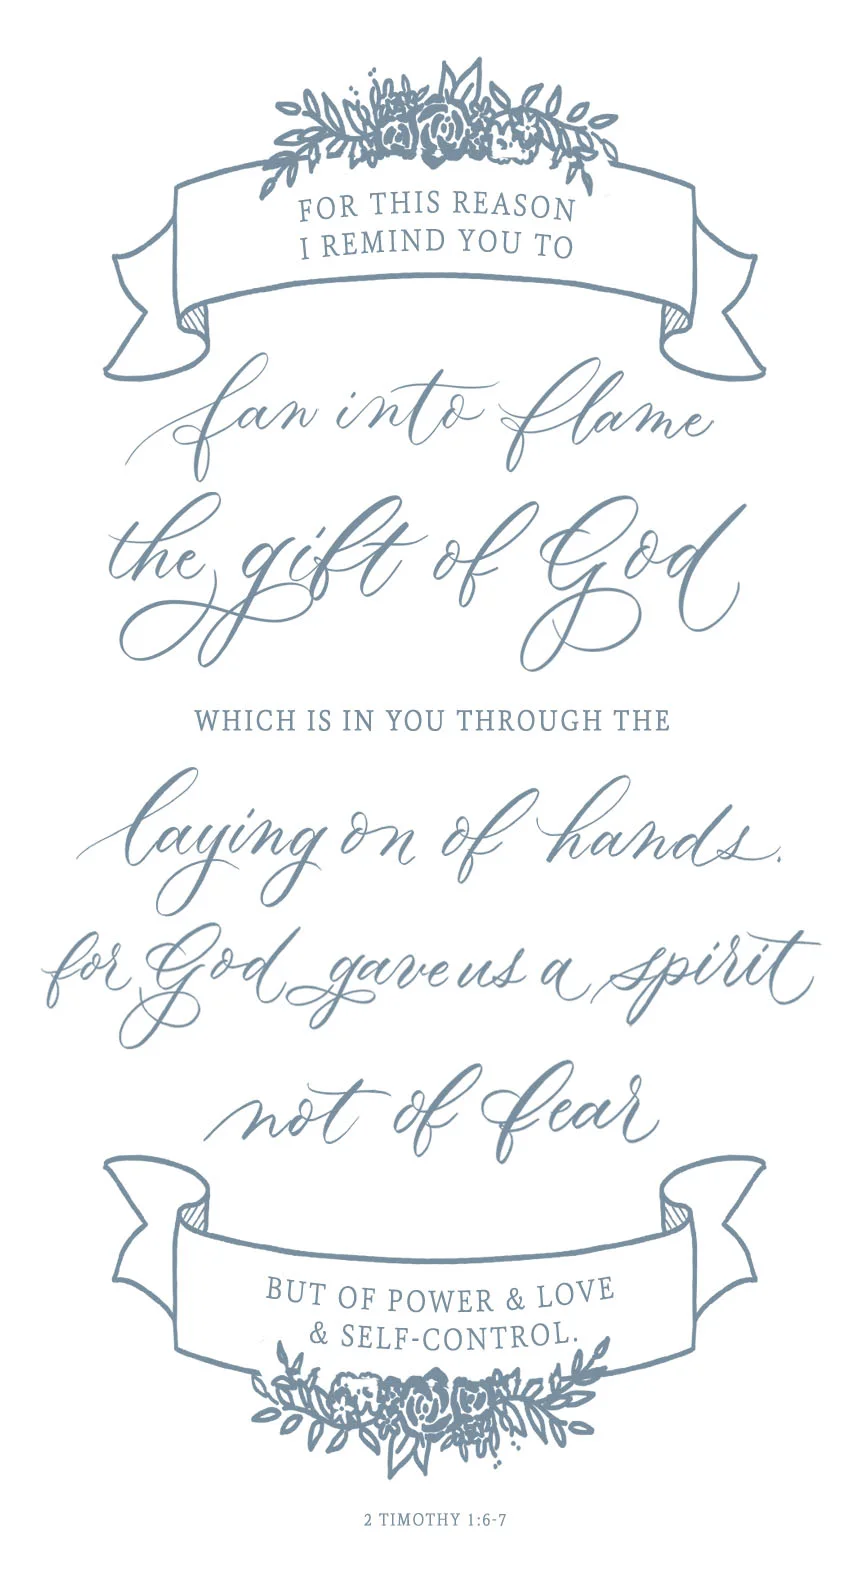 FOR THIS REASON
I REMIND YOU TO
fan into flame
the gift of God
WHICH IS IN YOU THROUGH THE
laying on of hands.
for God gave us a spirit
not of fear
BUT OF POWER & LOVE
& SELF-CONTROL.
2 TIMOTHY 1:6-7